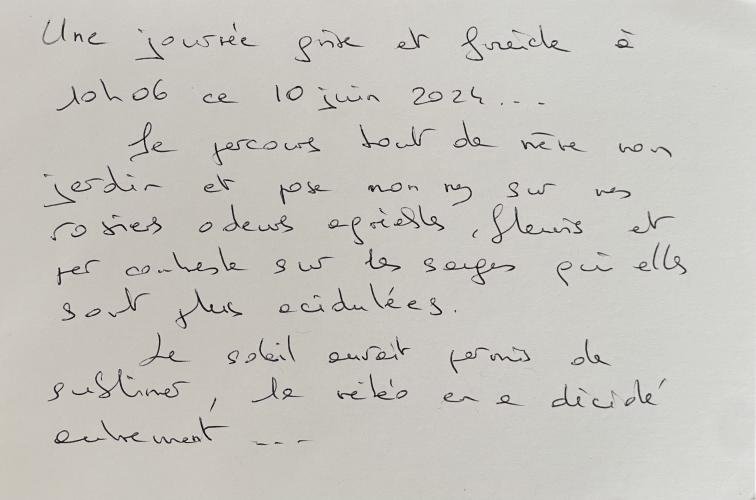 Une journée grise et froide à
10h06 ce 10 juin 2024...
Je parcours tout de même mon
jardin et pose mon nez sur mes
rosiers odeurs agréables, fleuris et
par contraste sur les sauges qui elles
sont plus acidulées.
Le soleil aurait permis de
sublimer, la météo en a décidé
autrement ...